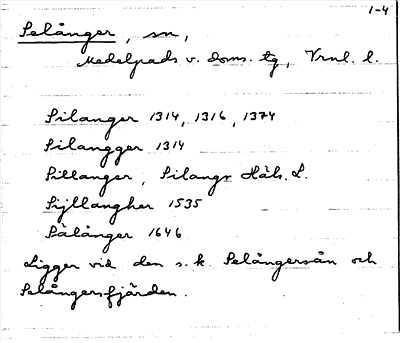 1-4
Selånger, sn,
Medelpads v. doms. tg, Vrnl. l.
Silanger 1314, 1316, 1374
Silangger 1314
Sillanger, Silangr Häls. L.
Sijllangher 1535
Sälånger 1646
Ligger vid den s.k. Selångersån och
Selångersfjärden.